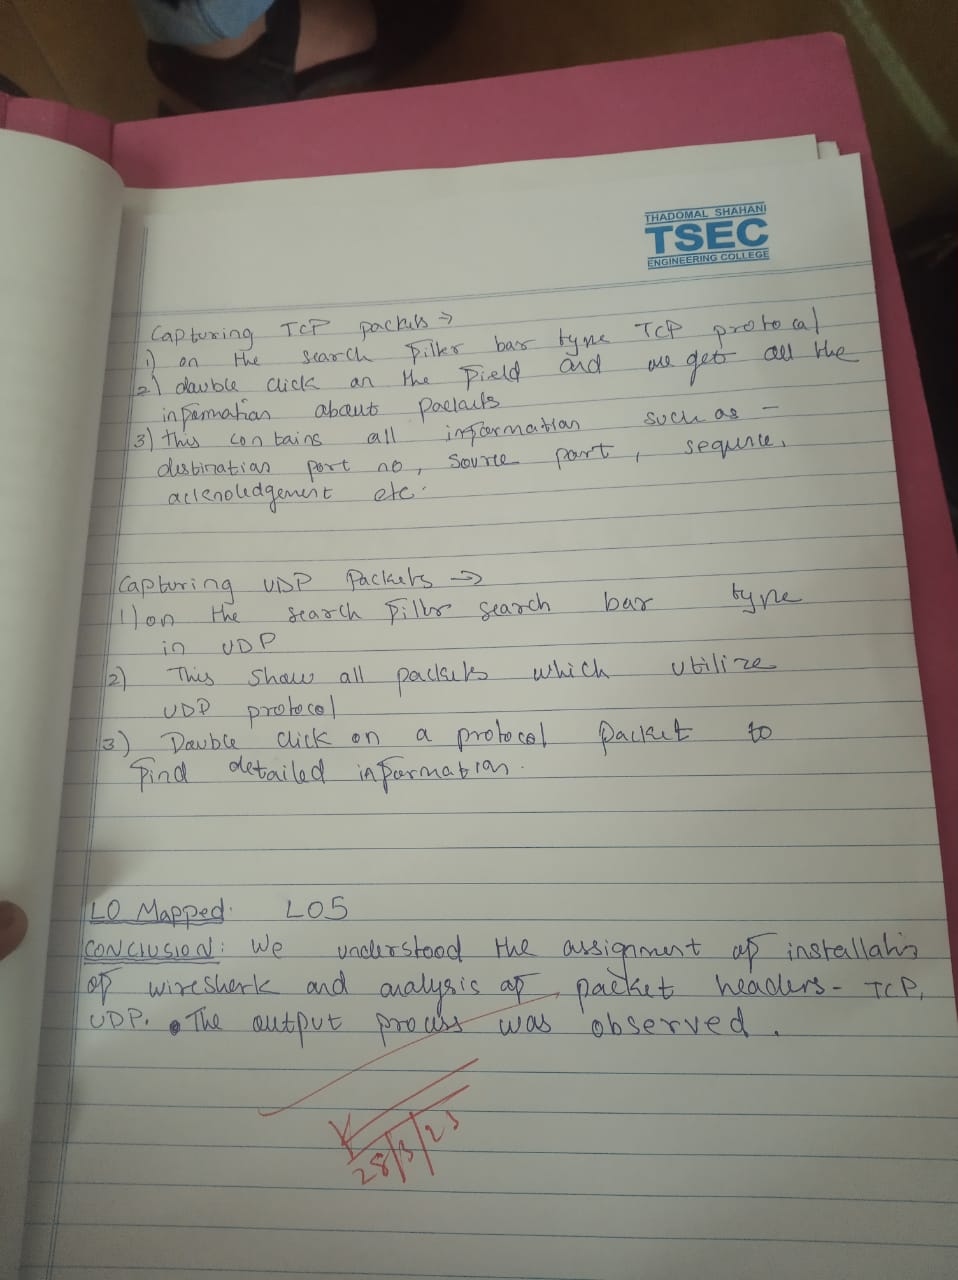 THADOMAL SHAHANI
TSEC
ENGINEERING COLLEGE
Capturing TCP packets →
1) on the search filter bar type TCP protocal
2) dauble click an the field and we get all the
infarmatian about packets
3) this contains all information such as -
destinatian port no, source part, sequnce,
acknoledgement etc.
Capturing UDP Packets →
1) on the search filter search bar type
in UDP
2) This show all packets which utilize
UDP protocol
3) Dauble click on a protocol packet to
find detailed infarmation.
LO Mapped: LO5
CONCLUSION: We understood the assignment of installatin
of wireshark and analysis of packet headers - TCP,
UDP. The output process was observed.
28/3/23